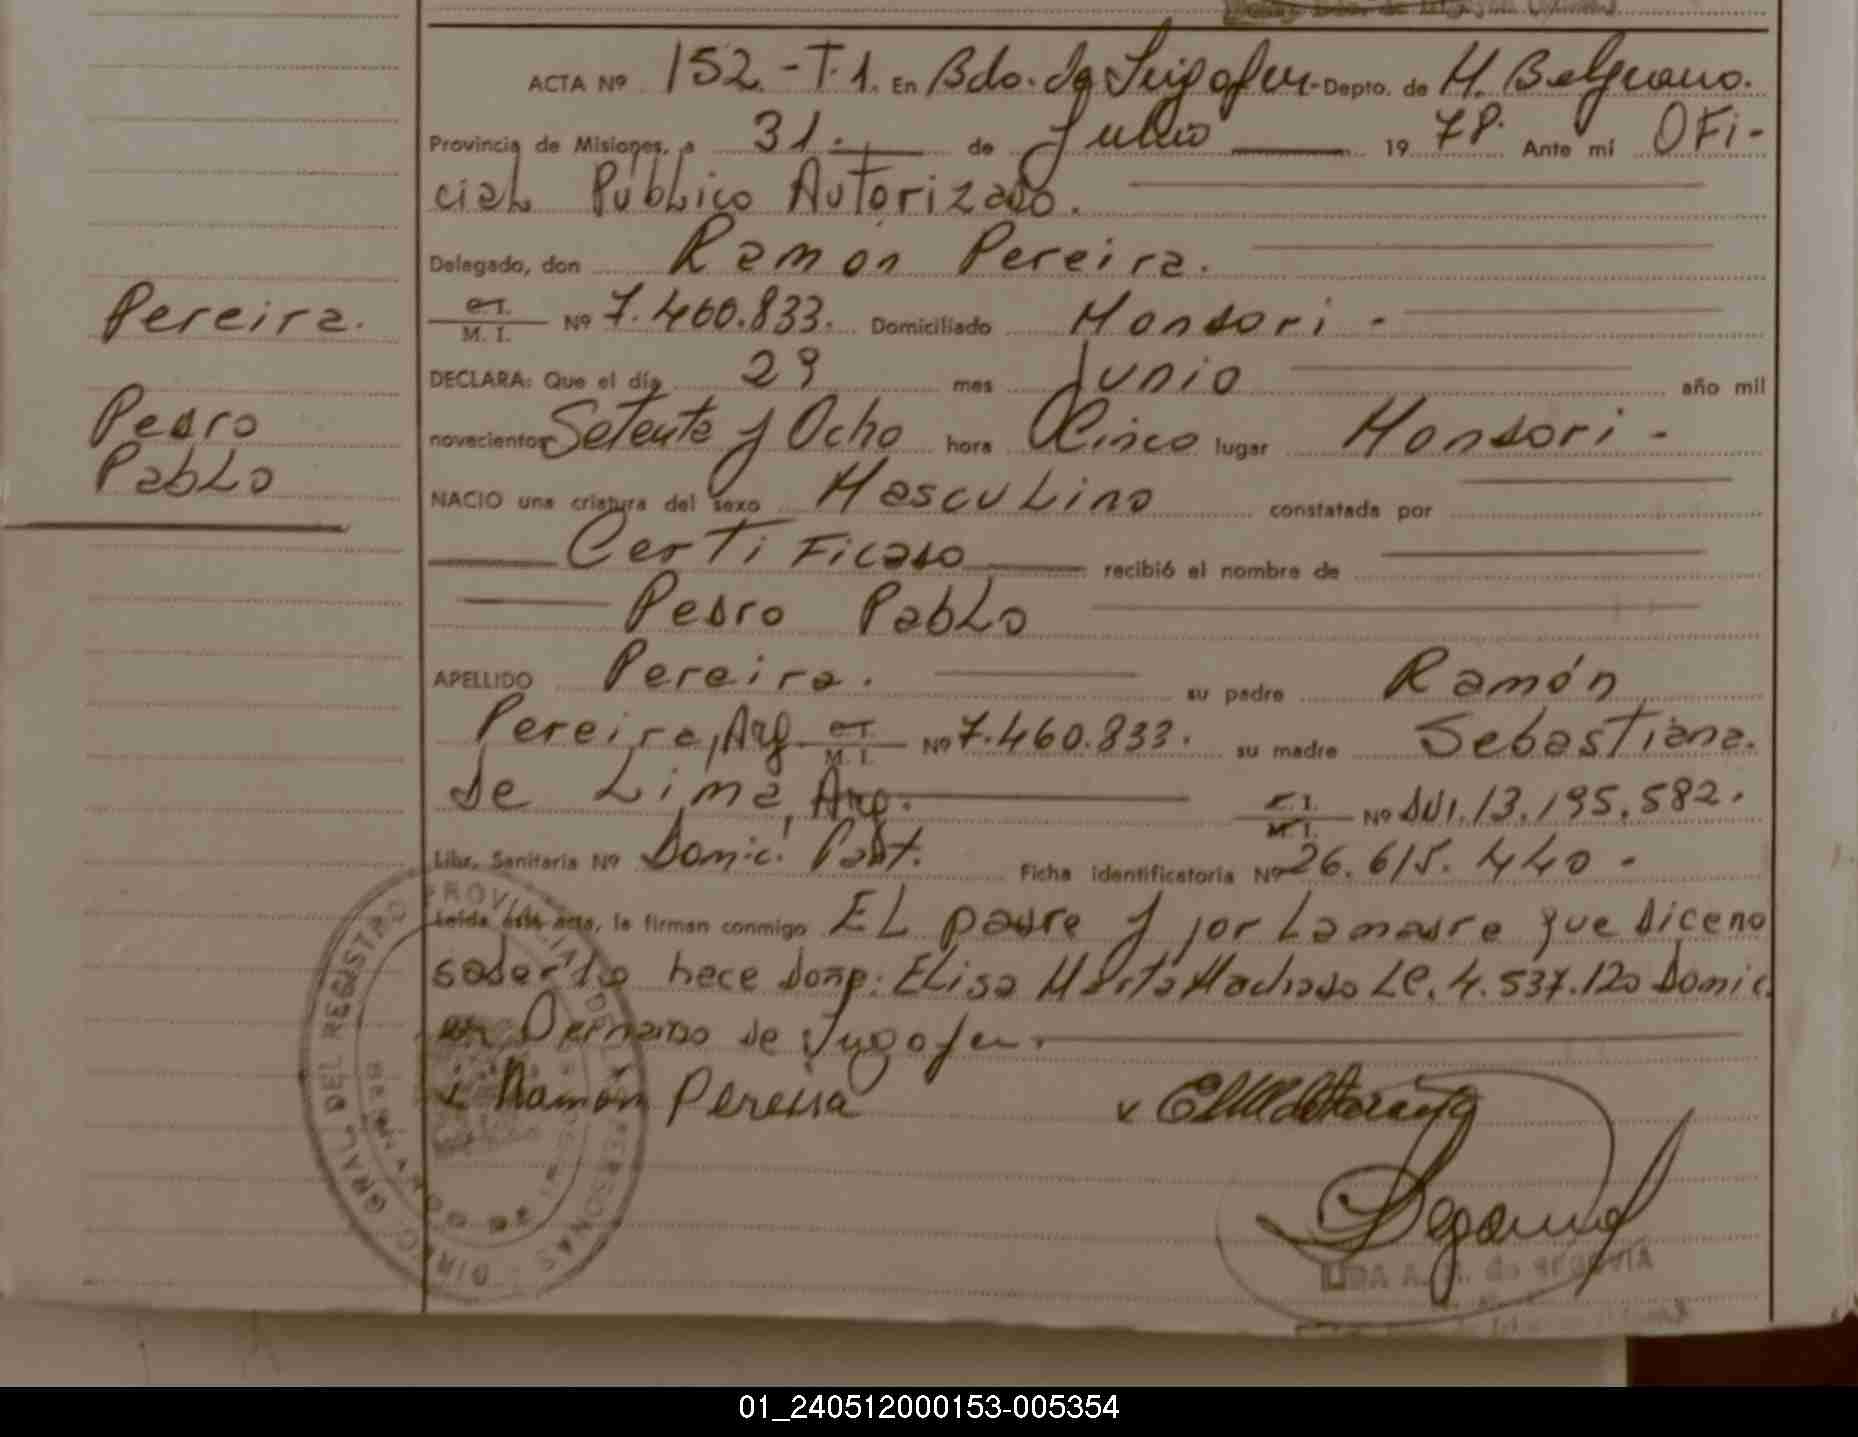 ACTA Nº 152.-T.1. En Bdo. de Irigoyen-Depto. de M. Belgrano.
Provincia de Misiones, a 31. de Julio 1978. Ante mí OFi-
ciaL PúbLico Autorizado.
Delegado, don Ramón Pereira.
Pereira.
C.I.
M. I. Nº 7.460.833. Domiciliado Monsori -
DECLARA: Que el día 29 mes Junio año mil
Pedro
PabLo
novecientos Setenta y Ocho hora Cinco lugar Monsori -
NACIO una criatura del sexo MascuLino constatada por
CertiFicado recibió el nombre de
Pedro PabLo
APELLIDO Pereira. su padre Ramón
Pereira, Arg. C.I. M. I. Nº 7.460.833. su madre Sebastiana.
de Lima, Arg. C.I. M. I. Nº DNI.13.195.582.
Libr. Sanitaria Nº Domic. Part. Ficha identificatoria Nº 26.615.440 -
Leída esta acta, la firman conmigo EL padre y por La madre que dice no
saber Lo hace doña: ELisa Marta Machado LC. 4.537.120 Domic.
en Bernardo de Irigoyen.
Ramon Pereira
DIREC. GRAL. DEL REGISTRO PROVINCIAL DE LAS PERSONAS
LIDA A. de SEGOVIA
01_240512000153-005354